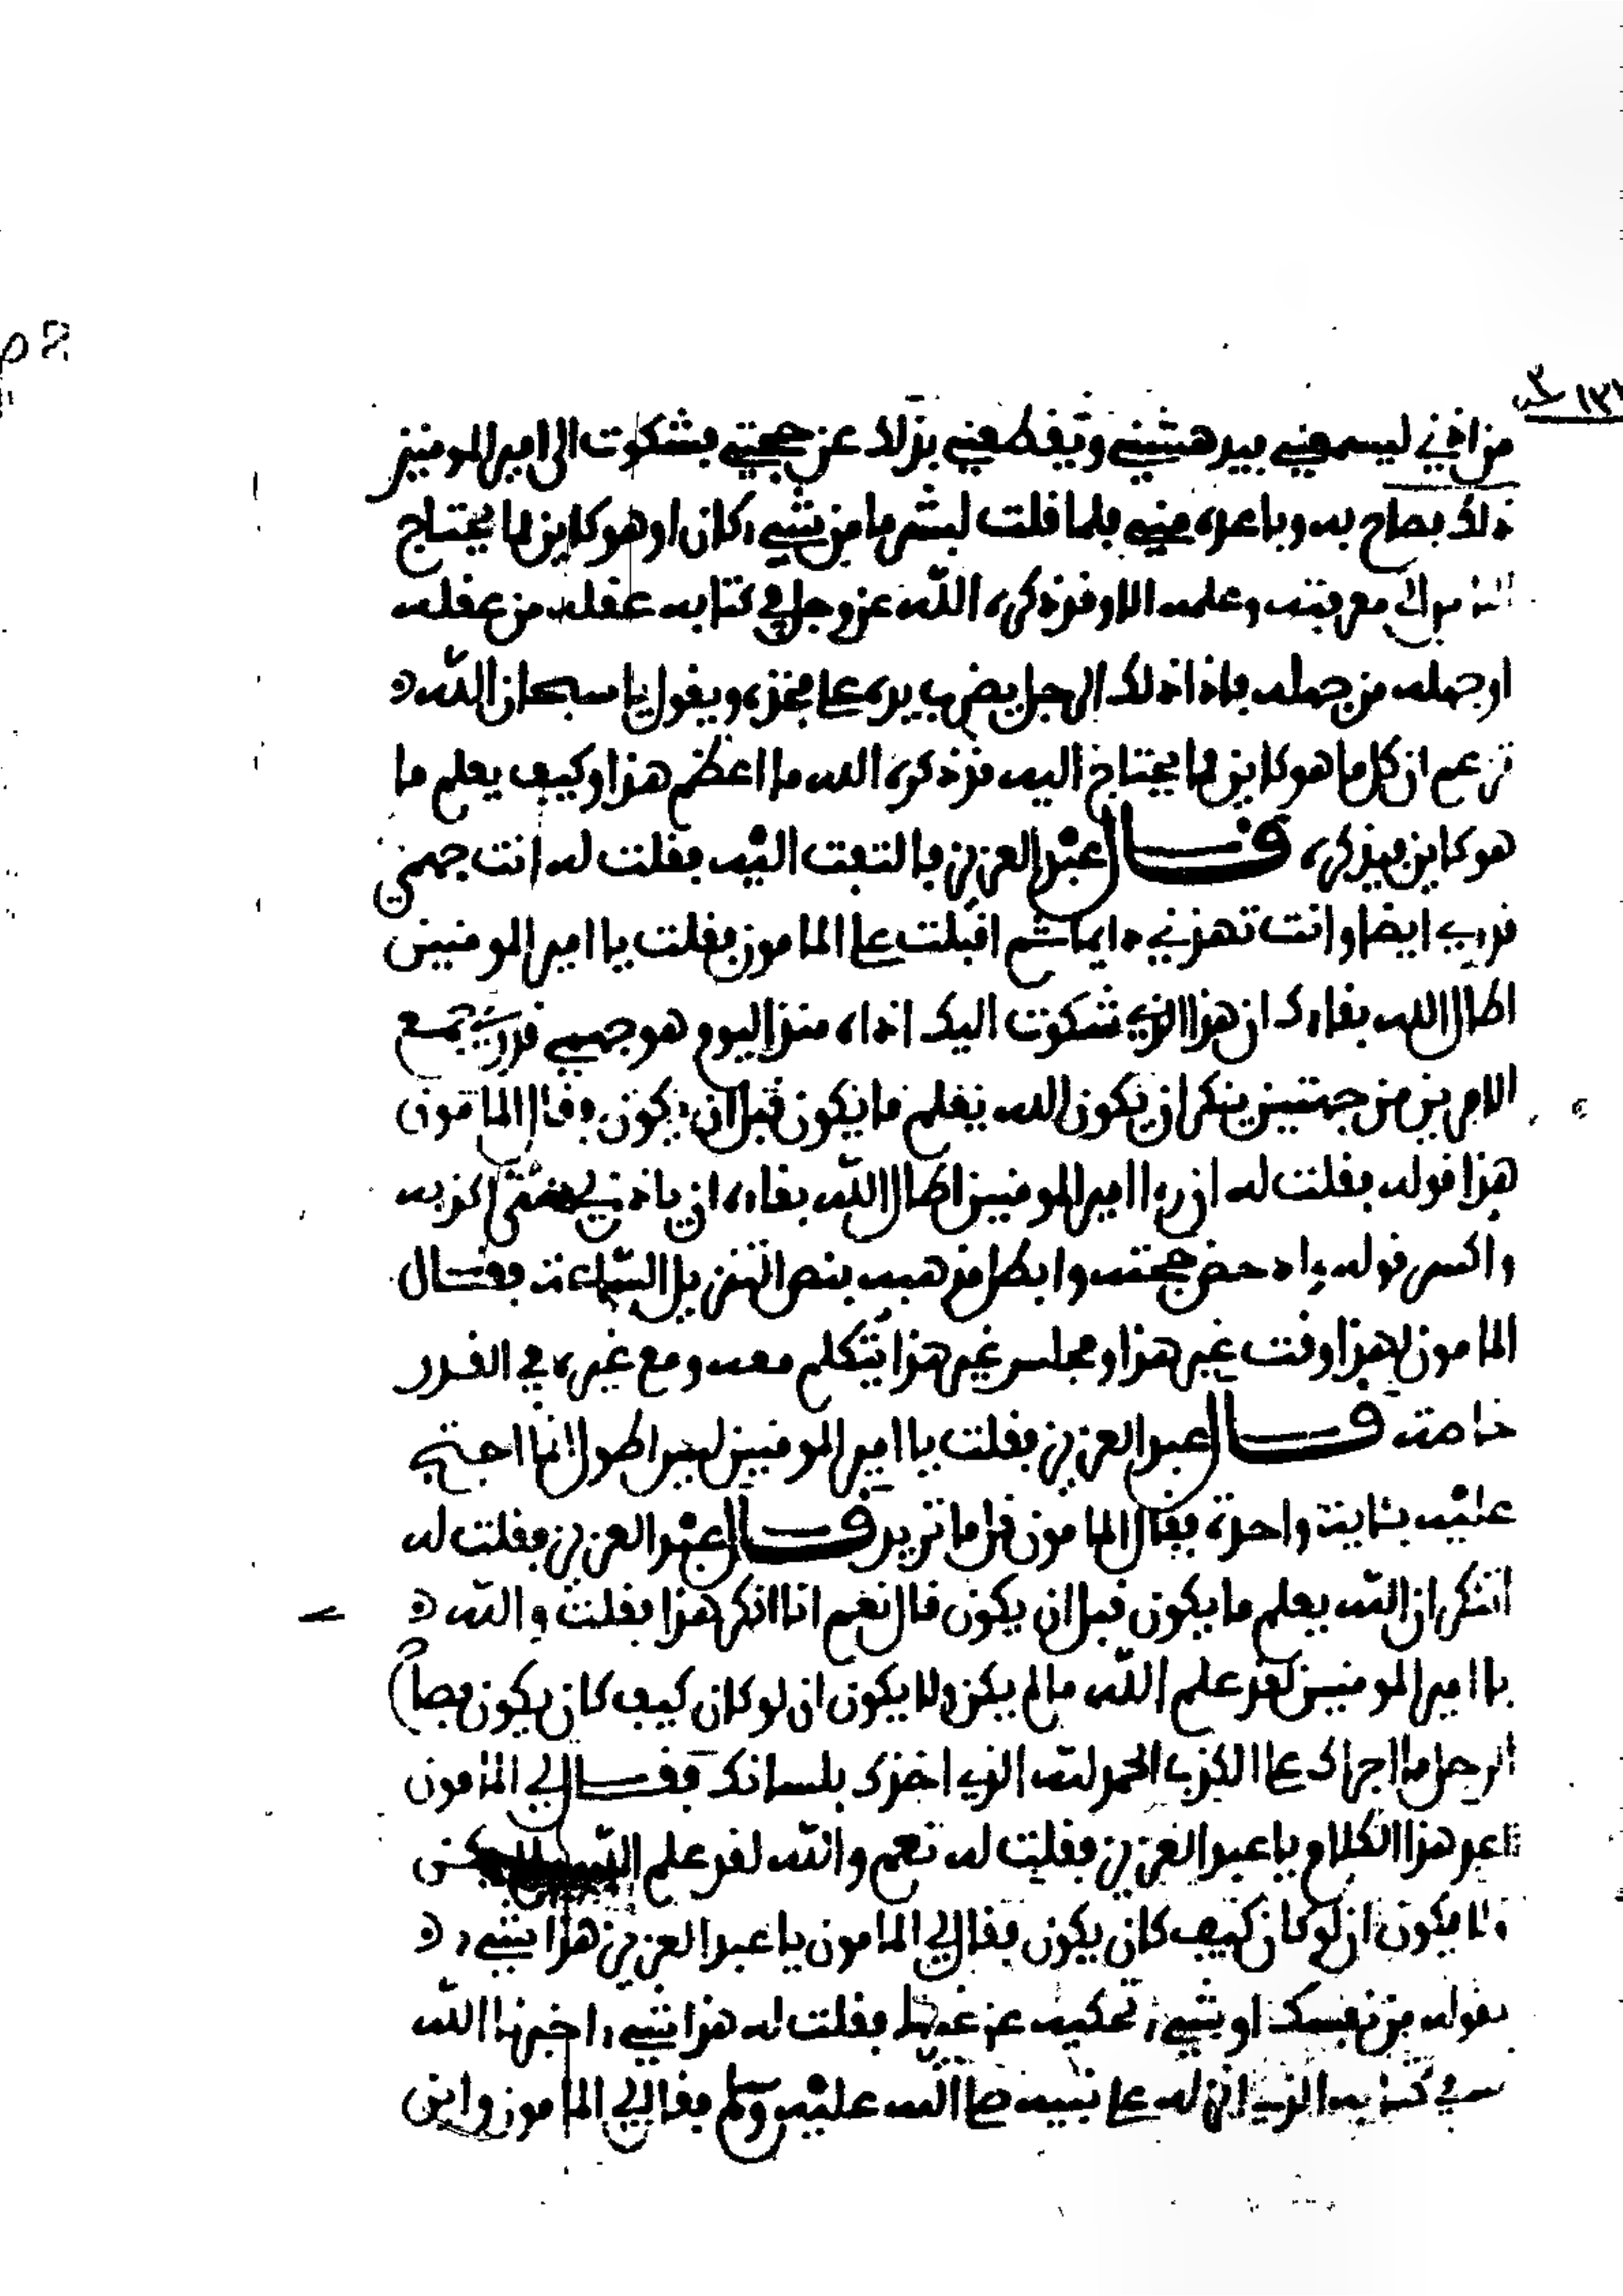 من اذني ليسمعني فيدهشني ويقطعني بذلك عن حجتي فشكوت الى امير المومنين
ذلك فصاح به وباعده مني فلما قلت لبشر ما من شيء كان او هو كاين مما يحتاج
معرفته وعلمه الا وقد ذكره الله عز وجل في كتابه عقله من عقله
او جهله من جهله فاذا ذلك الرجل يضرب يده على فخذه ويقول يا سبحان الله
تزعم ان كل ما هو كاين مما يحتاج اليه قد ذكره الله ما اعظم هذا وكيف يعلم ما
هو كاين فيذكره قال عبد العزيز فالتفت اليه فقلت له انت جهمي
قدري ايضا وانت تهزني دايما ثم اقبلت على المامون فقلت يا امير المومنين
اطال الله بقاءك ان هذا الذي شكوت اليك اذاه منذ اليوم هو جهمي قدري يجمع
الامرين من جهتين ينكر ان يكون الله يعلم ما يكون قبل ان يكون وقال المامون
هذا قوله فقلت له ان راا امير المومنين اطال الله بقاءه ان ياذن لي حتى اكذبه
واكسر قوله وادحض حجته وابطل مذهبه بنص التنزيل الساعة فقال
المامون لهذا وقت غير هذا ومجلس غير هذا يتكلم معه ومع غيره في القدر
خاصة قال عبد العزيز فقلت يا امير المومنين ليس اطول انما احتج
عليه بئاية واحدة فقال المامون قل ما تريد قال عبد العزيز فقلت له
اتنكر ان الله يعلم ما يكون قبل ان يكون قال نعم انا انكر هذا فقلت والله
يا امير المومنين لقد علم الله ما لم يكن ولا يكون ان لو كان كيف كان يكون فصاح
الرجل ما اجراك على الكذب الحمد لله الذي اخذك بلسانك فقال لي المامون
اعد هذا الكلام يا عبد العزيز فقلت له نعم والله لقد علم الله يكن
ولا يكون ان لو كان كيف كان يكون فقال لي المامون يا عبد العزيز هذا شيء
تقوله من نفسك او شيء تحكيه عن غيرك فقلت له هذا شيء اخبرنا الله
في كتابه الذي انزله على نبيه صلى الله عليه وسلم فقال لي المامون واين